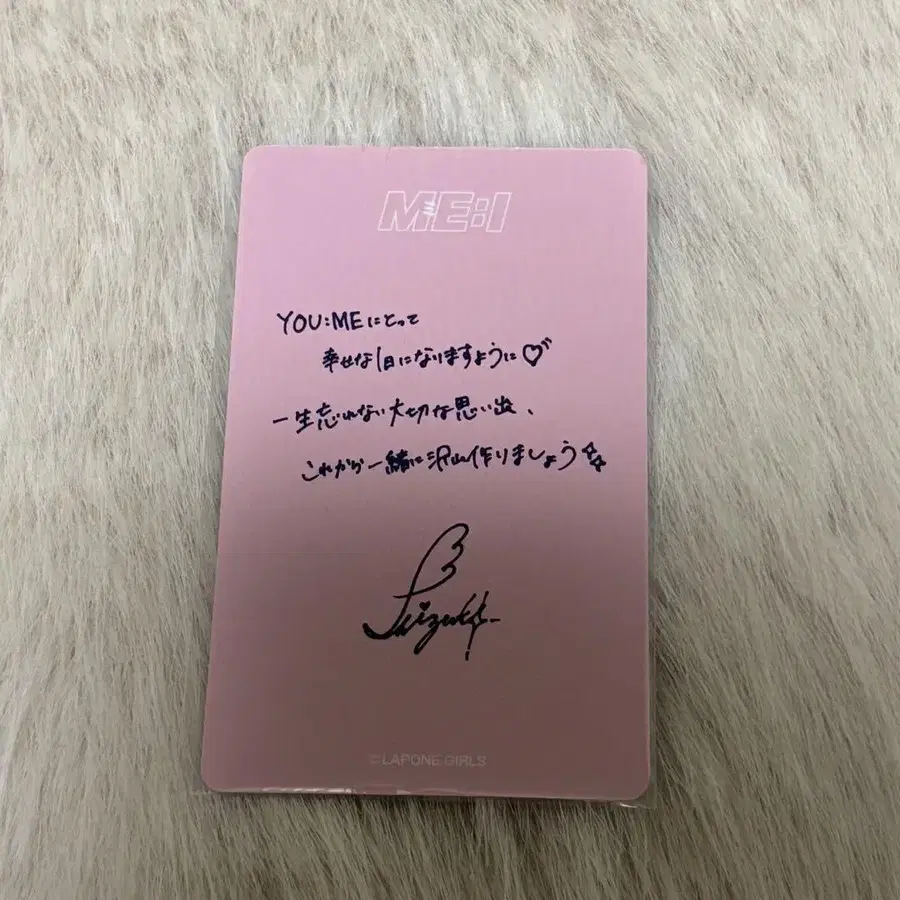 ME:I
YOU:MEにとって
幸せな1日になりますように♡
一生忘れない大切な思い出、
これから一緒に沢山作りましょう
Shizuku
©LAPONE GIRLS